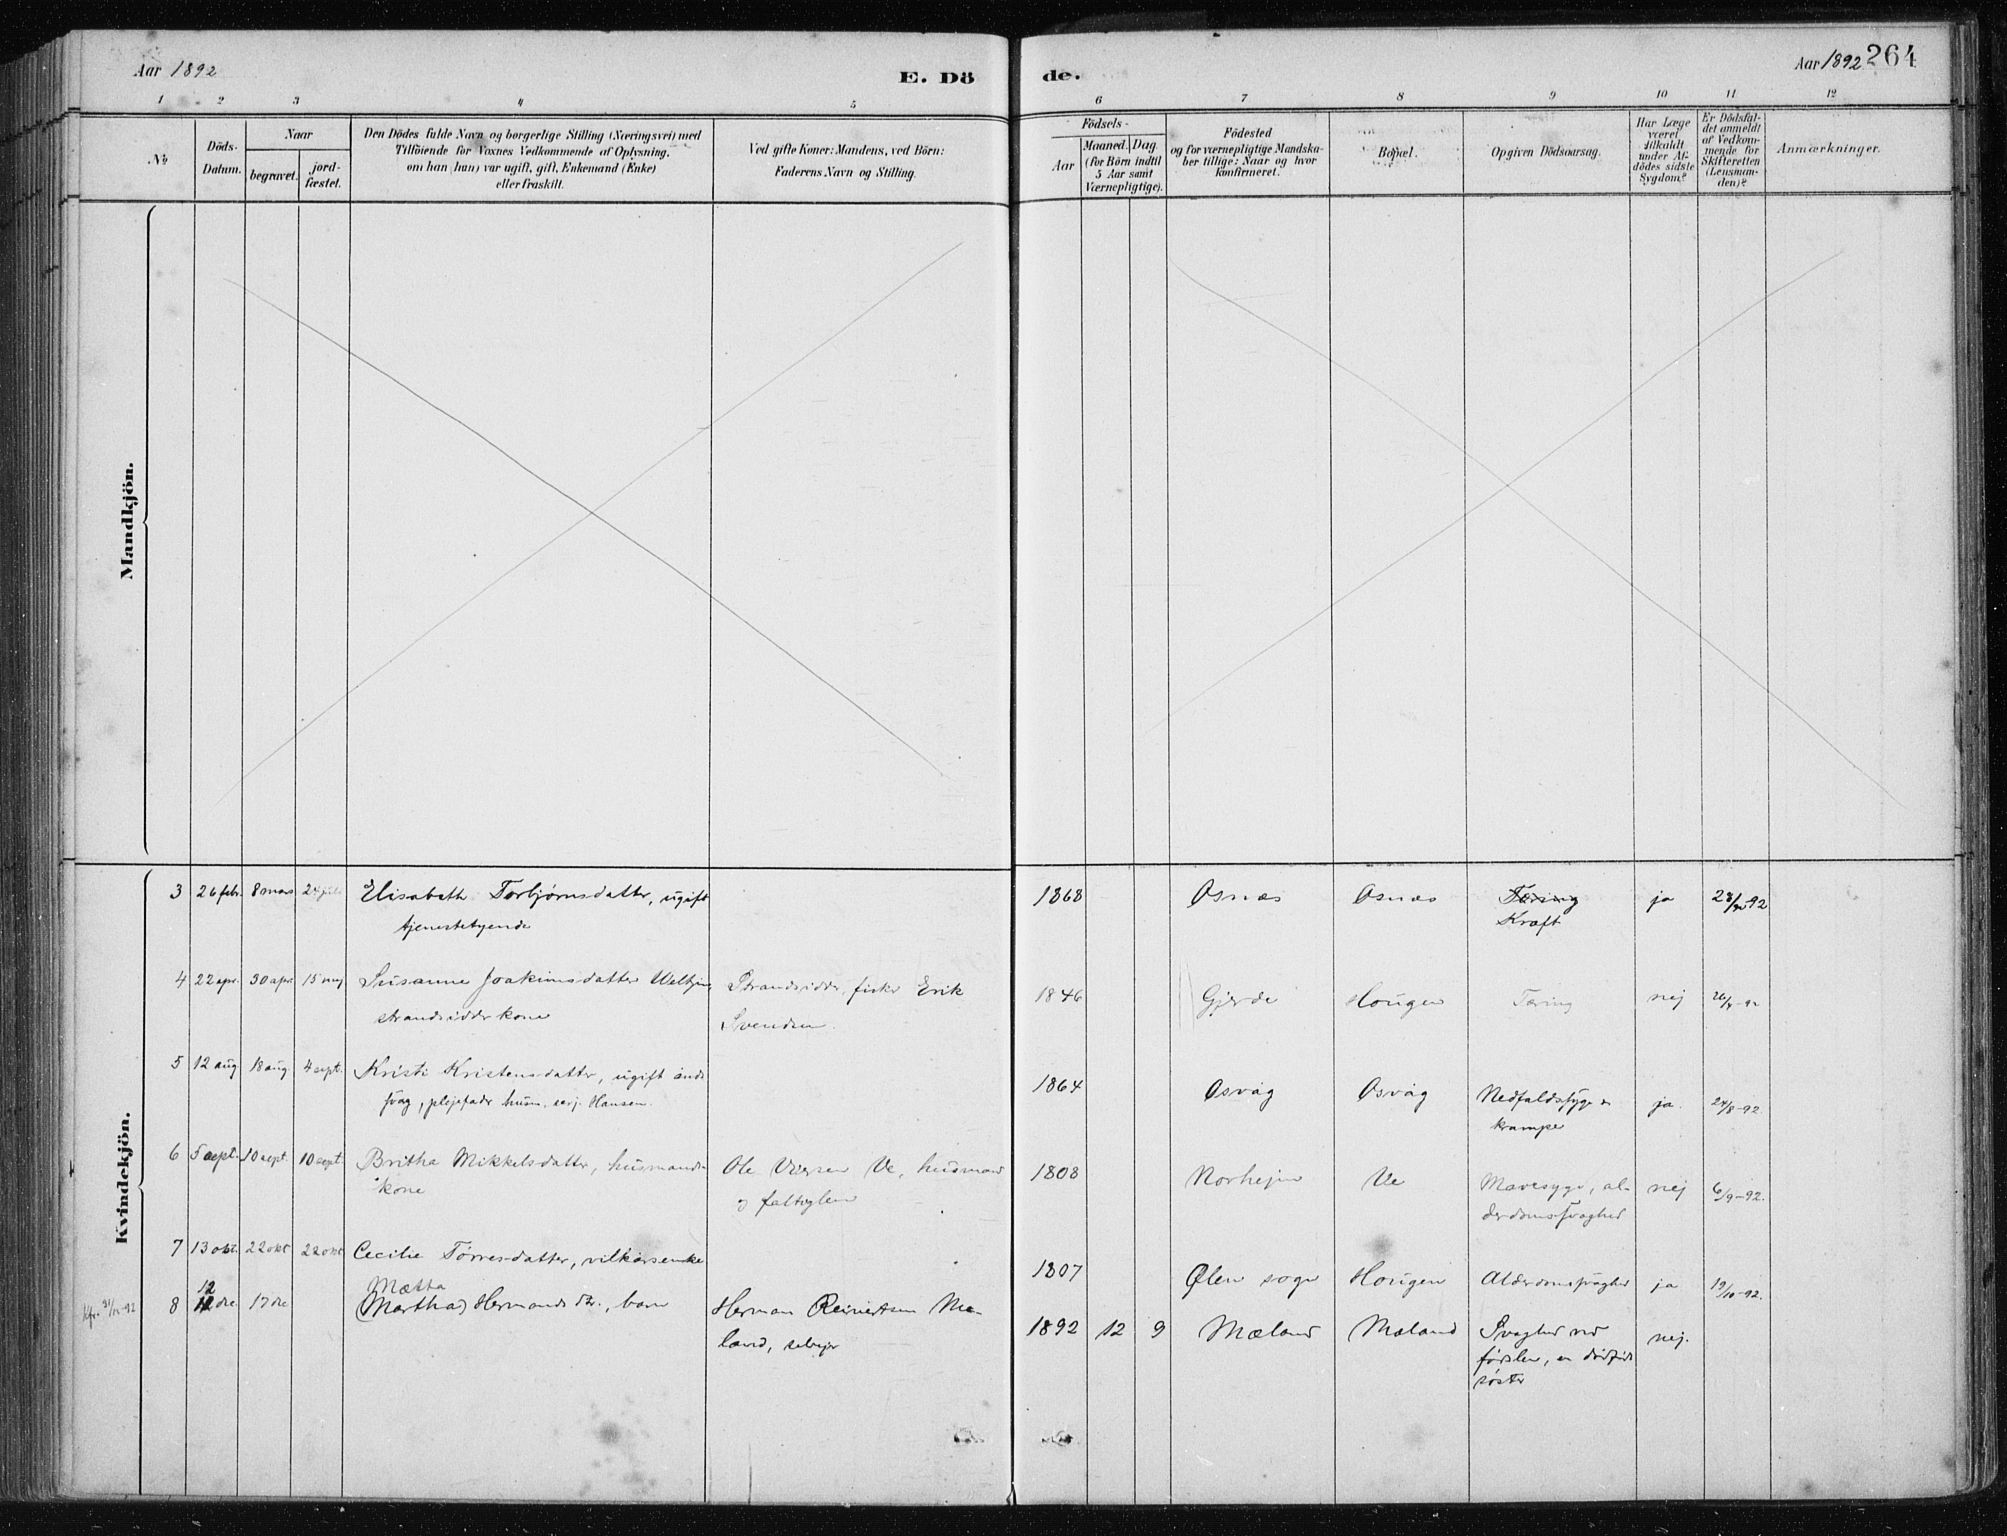 Aar 1892
E. Dö
de.
Aar 1892 264
1 2 3 4 5 6 7 8 9 10 11 12
No
Döds-
Datum.
Naar
begravet.
jord-
fæstet.
Den Dödes fulde Navn og borgerlige Stilling (Næringsvei) med
Tilföiende for Voxnes Vedkommende af Oplysning,
om han (hun) var ugift, gift, Enkemand (Enke)
eller fraskilt.
Ved gifte Koner: Mandens, ved Börn:
Faderens Navn og Stilling.
Födsels-
Aar
Maaned.
Dag.
(for Börn indtil
5 Aar samt
Værnepligtige).
Födested
og for værnepligtige Mandska-
ber tillige: Naar og hvor
konfirmeret.
Bopæl.
Opgiven Dödsaarsag.
Har Læge
været
tilkaldt
under Af-
dödes sidste
Sygdom?
Er Dödsfal-
det anmeldt
af Vedkom-
mende for
Skifteretten
(Lensman-
den)?
Anmærkninger.
Mandkjön.
Kvindekjön.
3 26 febr. 8 mars Elisabeth Torbjørnsdatter, ugift 1868 Osnæs Osnæs Tæring ja
tjenestetyende Kræft
4 22 apr. 30 apr. 15 maj Susanne Joakimsdatter Strandsidder, fisker Erik 1846 Gjerde Hougen Tæring nej
strandsidderkone Svendsen
5 12 aug 18 aug. 4 sept. Kristi Kristensdatter, ugift ånds 1864 Osvåg Osvåg Nedfaldssyge ja. 24/8-92.
svag, plejefader husm. serj. Hansen. krampe
6 5 sept. 10 sept. 10 sept. Britha Mikkelsdatter, husmands Ole Ve, husmand 1808 Norhejm Ve Mavesyge, al- nej 6/9-92.
kone derdomssvaghed
7 13 okt. 22 okt 22 okt Cecilie Tørresdatter, vilkårsenke 1807 Ølen sogn Hougen Alderdomssvaghed ja 19/10-92.
Mætta
8 12 dec 17 dec (Martha) Hermandsdtr., barn Herman Reinertsen Mæ- 1892 12 9 Mæland Mæland Svaghed ved nej.
land, selvejer fødslen, en dødfødt
søster